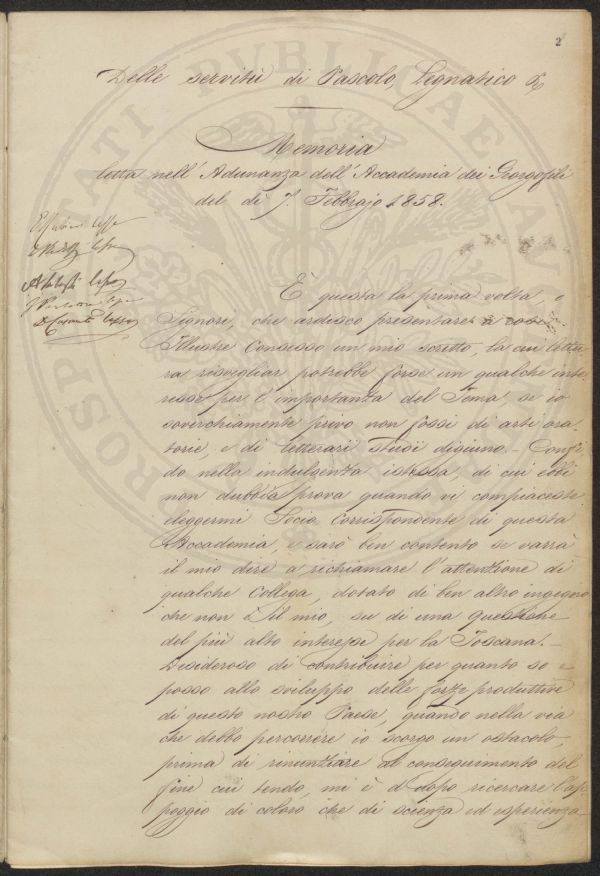 2
Delle servitù di Pascolo, Legnatico &
Memoria
letta nell'Adunanza dell'Accademia dei Georgofili
del dì 7. Febbrajo 1858.
È questa la prima volta, o
Signori, che ardisco presentare a così
Illustre Consesso un mio scritto, la cui lettu-
ra risvegliar potrebbe forse un qualche inte-
resse per l'importanza del Tema, se io
soverchiamente privo non fossi di arti ora-
torie, e di letterari studi digiuno. - Confi-
do nella indulgenza istessa, di cui ebbi
non dubbia prova quando vi compiaceste
eleggermi Socio Corrispondente di questa
Accademia, e sarò ben contento se varrà
il mio dire a richiamare l'attenzione di
qualche Collega, dotato di ben altro ingegno
che non è il mio, su di una questione
del più alto interesse per la Toscana. -
Desideroso di contribuire per quanto so e
posso allo sviluppo delle forze produttive
di questo nostro Paese, quando nella via
che debbo percorrere io scorgo un ostacolo,
prima di rinunziare al conseguimento del
fine cui tendo, mi è d'uopo ricercare l'ap-
poggio di coloro che di scienza ed esperienza
PROSPERITATI PUBLICAE